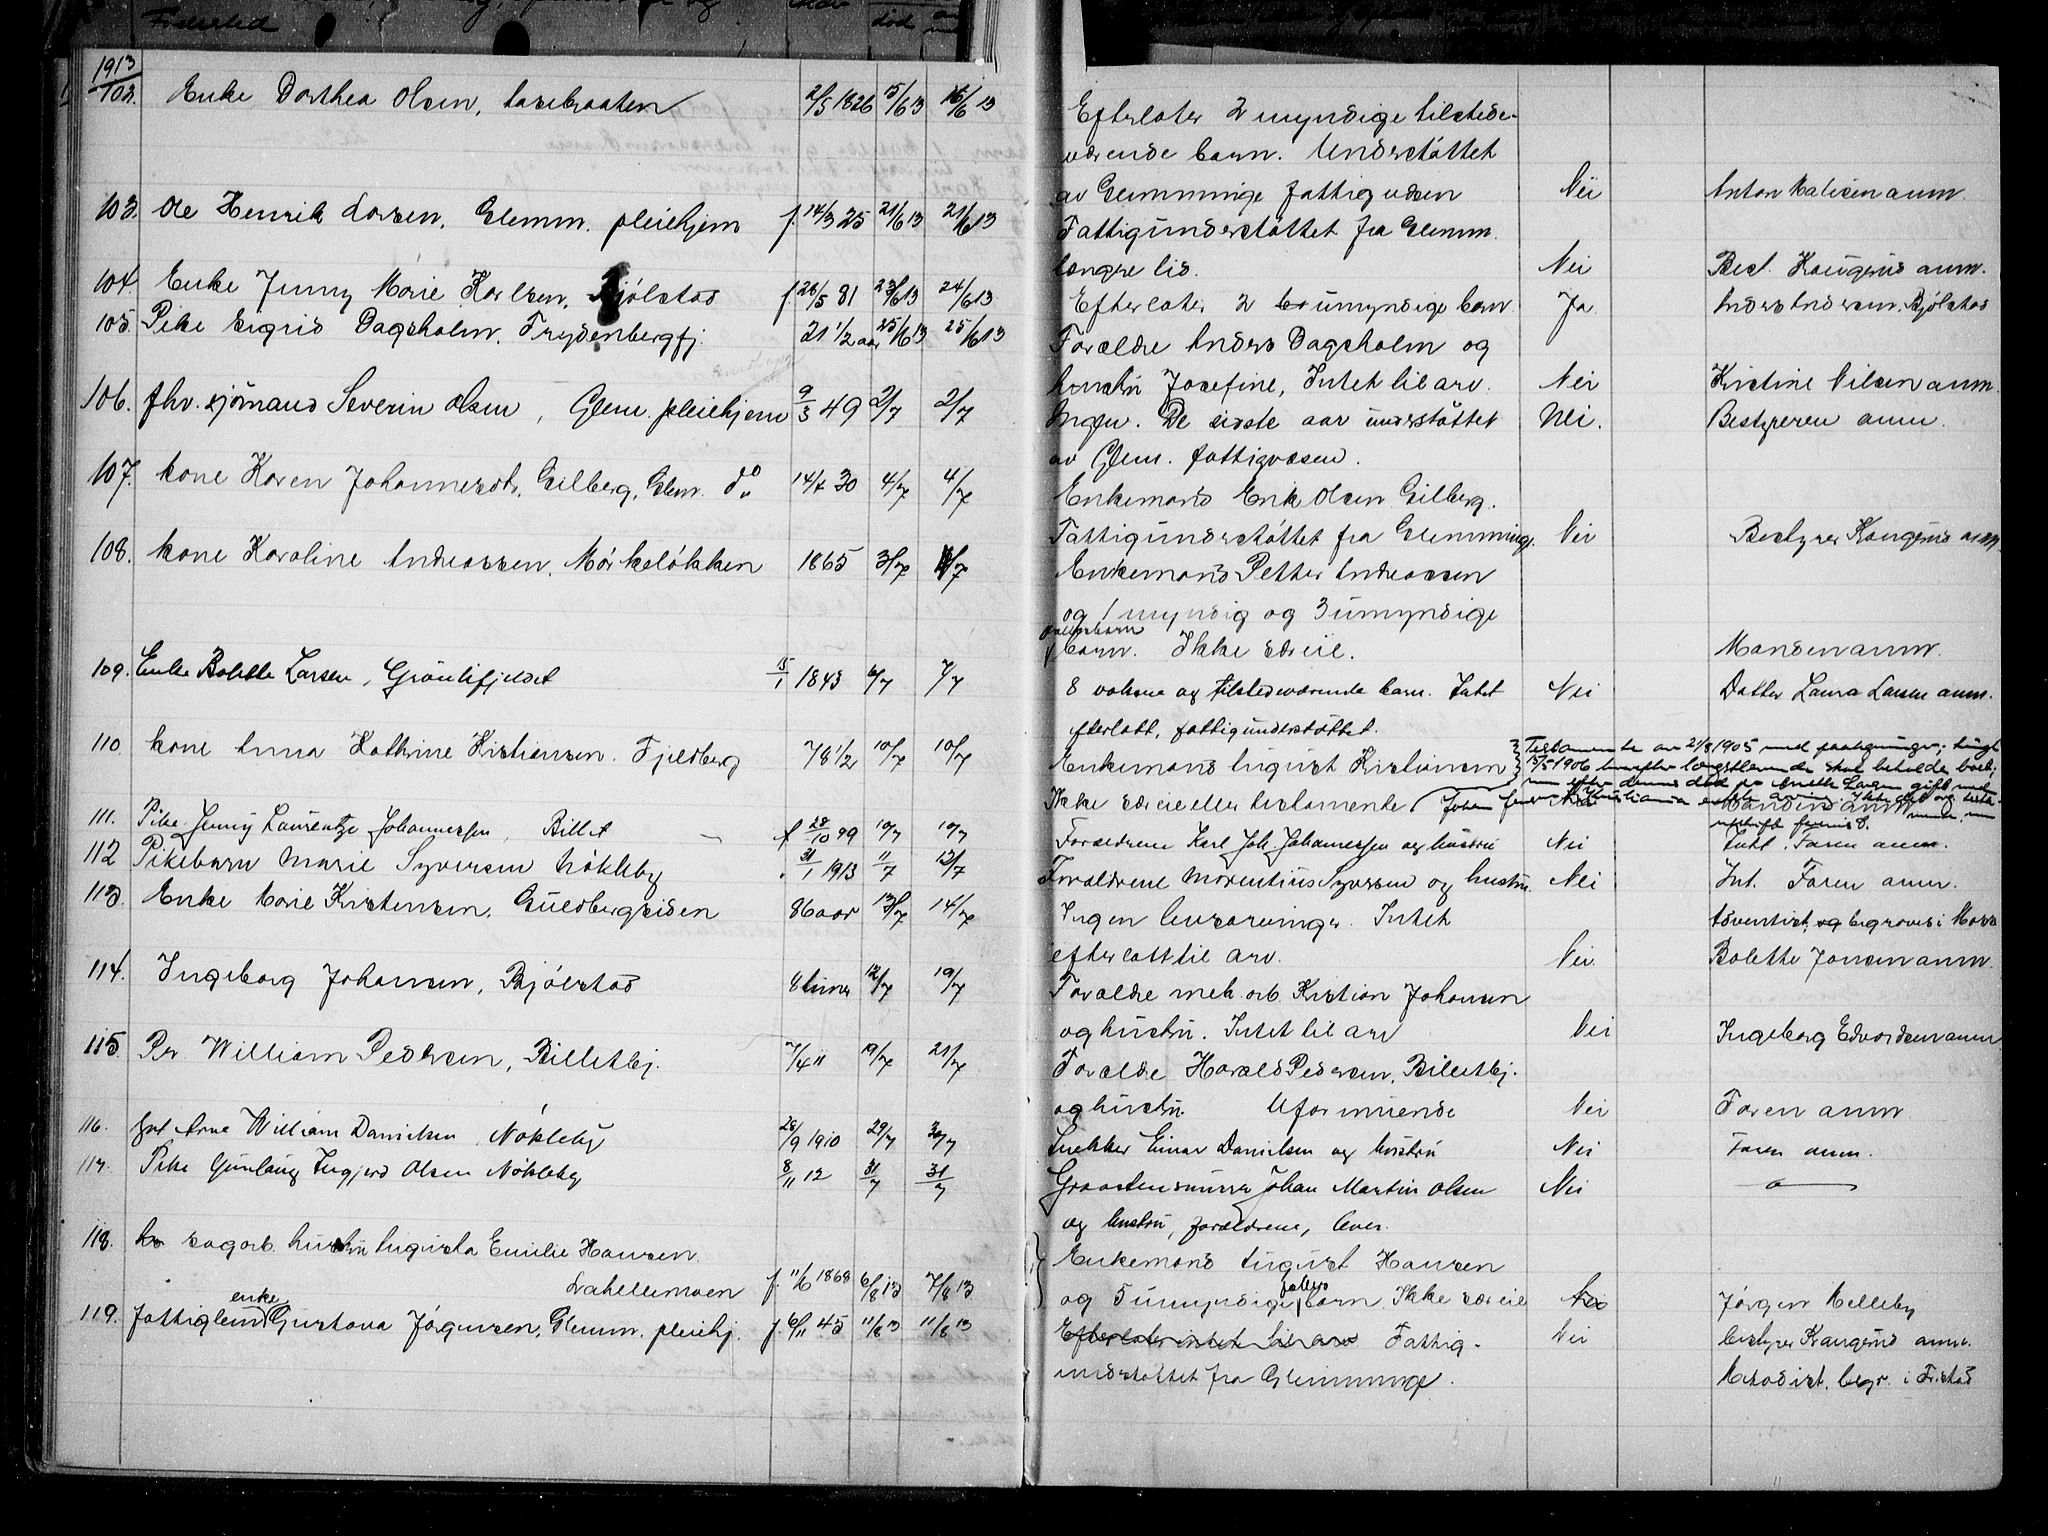 Fødested
død
1913
102. Enke Dorthea Olsen, 2/5 1826 15/6 13 16/6 13
Efterlater 2 myndige tilstede-
værende barn. Understøttet
av Glemminge fattigvæsen Nei Anton Halisen anm.
103. Ole Henrik Larsen, Glemm. pleiehjem f. 14/3 25 21/6 13 21/6 13
Fattigunderstøttet fra Glemm.
længre tid. Nei Best. Haugerud anm.
104. Enke Jenny Marie Karlsen, Bjølstad f. 26/5 81 23/6 13 24/6 13
Efterlater 2 umyndige barn Ja Anders Andersen, Bjølstad
105. Pike Sigrid Dagsholm, Frydenbergfj. 21 1/2 aar 25/6 13 25/6 13
Forældre Anders Dagsholm og
hustru Josefine, Intet til arv. Nei Kristine Nilsen anm.
106. fhv. sjømand Severin Olsen, Glem. pleiehjem 9/3 49 2/7 2/7
Ingen. De sidste aar understøttet Nei. Bestyreren anm.
av Glem. fattigvæsen.
107. kone Karen Johannesdtr. Gilberg, Glem. do 14/7 30 4/7 4/7
Enkemand Erik Olsen Gilberg.
Fattigunderstøttet fra Glemminge. Nei Bestyrer Haugerud anm
108. kone Karoline Andreassen, Mørkeløkken 1865 3/7 4/7
Enkemand Petter Andreassen
og 1 myndig og 3 umyndige
barn. Ikke særeie. Manden anm.
109. Enke Bolette Larsen, Grønlifjeldet 15/1 1843 6/7 7/7
8 voksne og tilstedeværende barn. Intet Nei Datter Laura Larsen anm.
efterlatt, fattigunderstøttet.
110. kone Anna Kathrine Kristiansen, Fjeldberg 78 1/2 10/7 10/7
Testamente av 21/8 1905 med paategning, tingl
Enkemand August Kristiansen 15/5 1906 hvorefter længstlevende skal beholde boet;
men efter dennes død faa Anette Larsen gift med
Ikke særeie eller testamente
111. Pike Jenny Laurentze Johannessen, Billet f 28/10 99 10/7 10/7
Forældrene Karl Joh. Johannessen og hustru Nei Intet. Faren anm.
112 Pikebarn Marie Syversen Nøkleby 31/1 1913 11/7 12/7
Forældrene Morentius Syversen og hustru Nei Int. Faren anm.
113. Enke Marie Kristensen, Guldbergsiden 86 aar 13/7 14/7
Ingen livsarvinger. Intet Adventist, og begraves i Moss
efterlatt til arv. Nei Bolette Jonsen anm.
114. Ingeborg Johansen, Bjølstad 8 timer 12/7 19/7
Forældre mek. arb. Kristian Johansen
og hustru. Intet til arv Nei Ingeborg Edvardsen anm
115. Per William Pedersen, Billetbj. 7/4 11 19/7 21/7
Forældre Harald Pedersen, Billetbj.
og hustru. Uformuende Nei Faren anm
116. Gut Arne William Danielsen, Nøkleby 28/9 1910 29/7 30/7
Snekker Einar Danielsen og hustru Nei Faren anm.
117. Pike Gunlaug Ingjerd Olsen Nøkleby 8/11 12 31/7 31/7
Graastensmurer Johan Martin Olsen Nei
og hustru, forældrene, lever.
118. sagarb. hustru Augusta Emilie Hansen
Enkemand August Hansen
Lahellemoen f. 11/6 1868 6/8 13 7/8 13
og 5 umyndige fælles barn. Ikke særeie Nei Jørgen Melleby
119. Fattiglem enke Gustava Jørgensen, Glemm. pleiehj. f. 6/11 45 11/8 13 11/8 13
Efterlater intet til arv. Fattig- Nei bestyrer Haugerud anm.
understøttet fra Glemminge. Metodist, begr. i Fr.stad